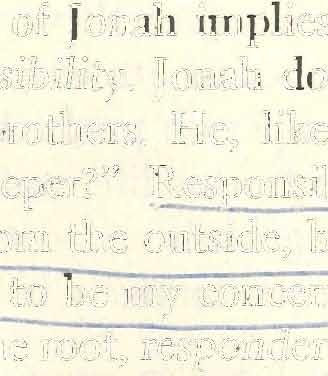 of Jonah implies
sibility. Jonah do
rothers. He, like
eeper?” Responsil
om the outside, b
to be my concer
e root, responder